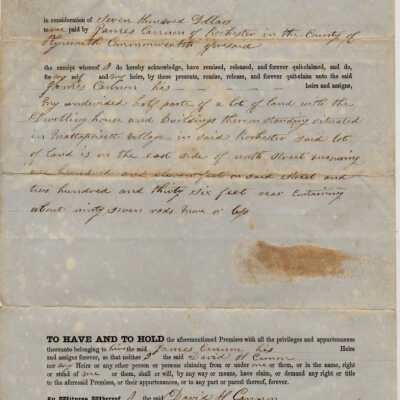 in consideration of Seven Hundred Dollars
to me paid by James Cannon of Rochester in the County of
Plymouth Commonwealth aforesaid
the receipt whereof I do hereby acknowledge, have remised, released, and forever quit-claimed, and do,
for my self and my heirs, by these presents, remise, release, and forever quit-claim unto the said
James Cannon his heirs and assigns,
My undivided half parts of a lot of land with the
Dwelling house and Buildings thereon standing situated
in Mattapoisett Village in said Rochester said lot
of land is on the east side of north street measuring
one hundred and eleven feet on said street and
two hundred and thirty six feet rear Containing
about ninty seven rods more or less
TO HAVE AND TO HOLD the aforementioned Premises with all the privileges and appurtenances
thereunto belonging to him the said James Cannon his Heirs
and assigns forever, so that neither I the said David H Cannon
nor my Heirs or any other person or persons claiming from or under me or them, or in the name, right
or stead of me or them, shall or will, by any way or means, have, claim, or demand any right or title
to the aforesaid Premises, or their appurtenances, or to any part or parcel thereof, forever.
In Witness Whereof, I the said David H Cannon